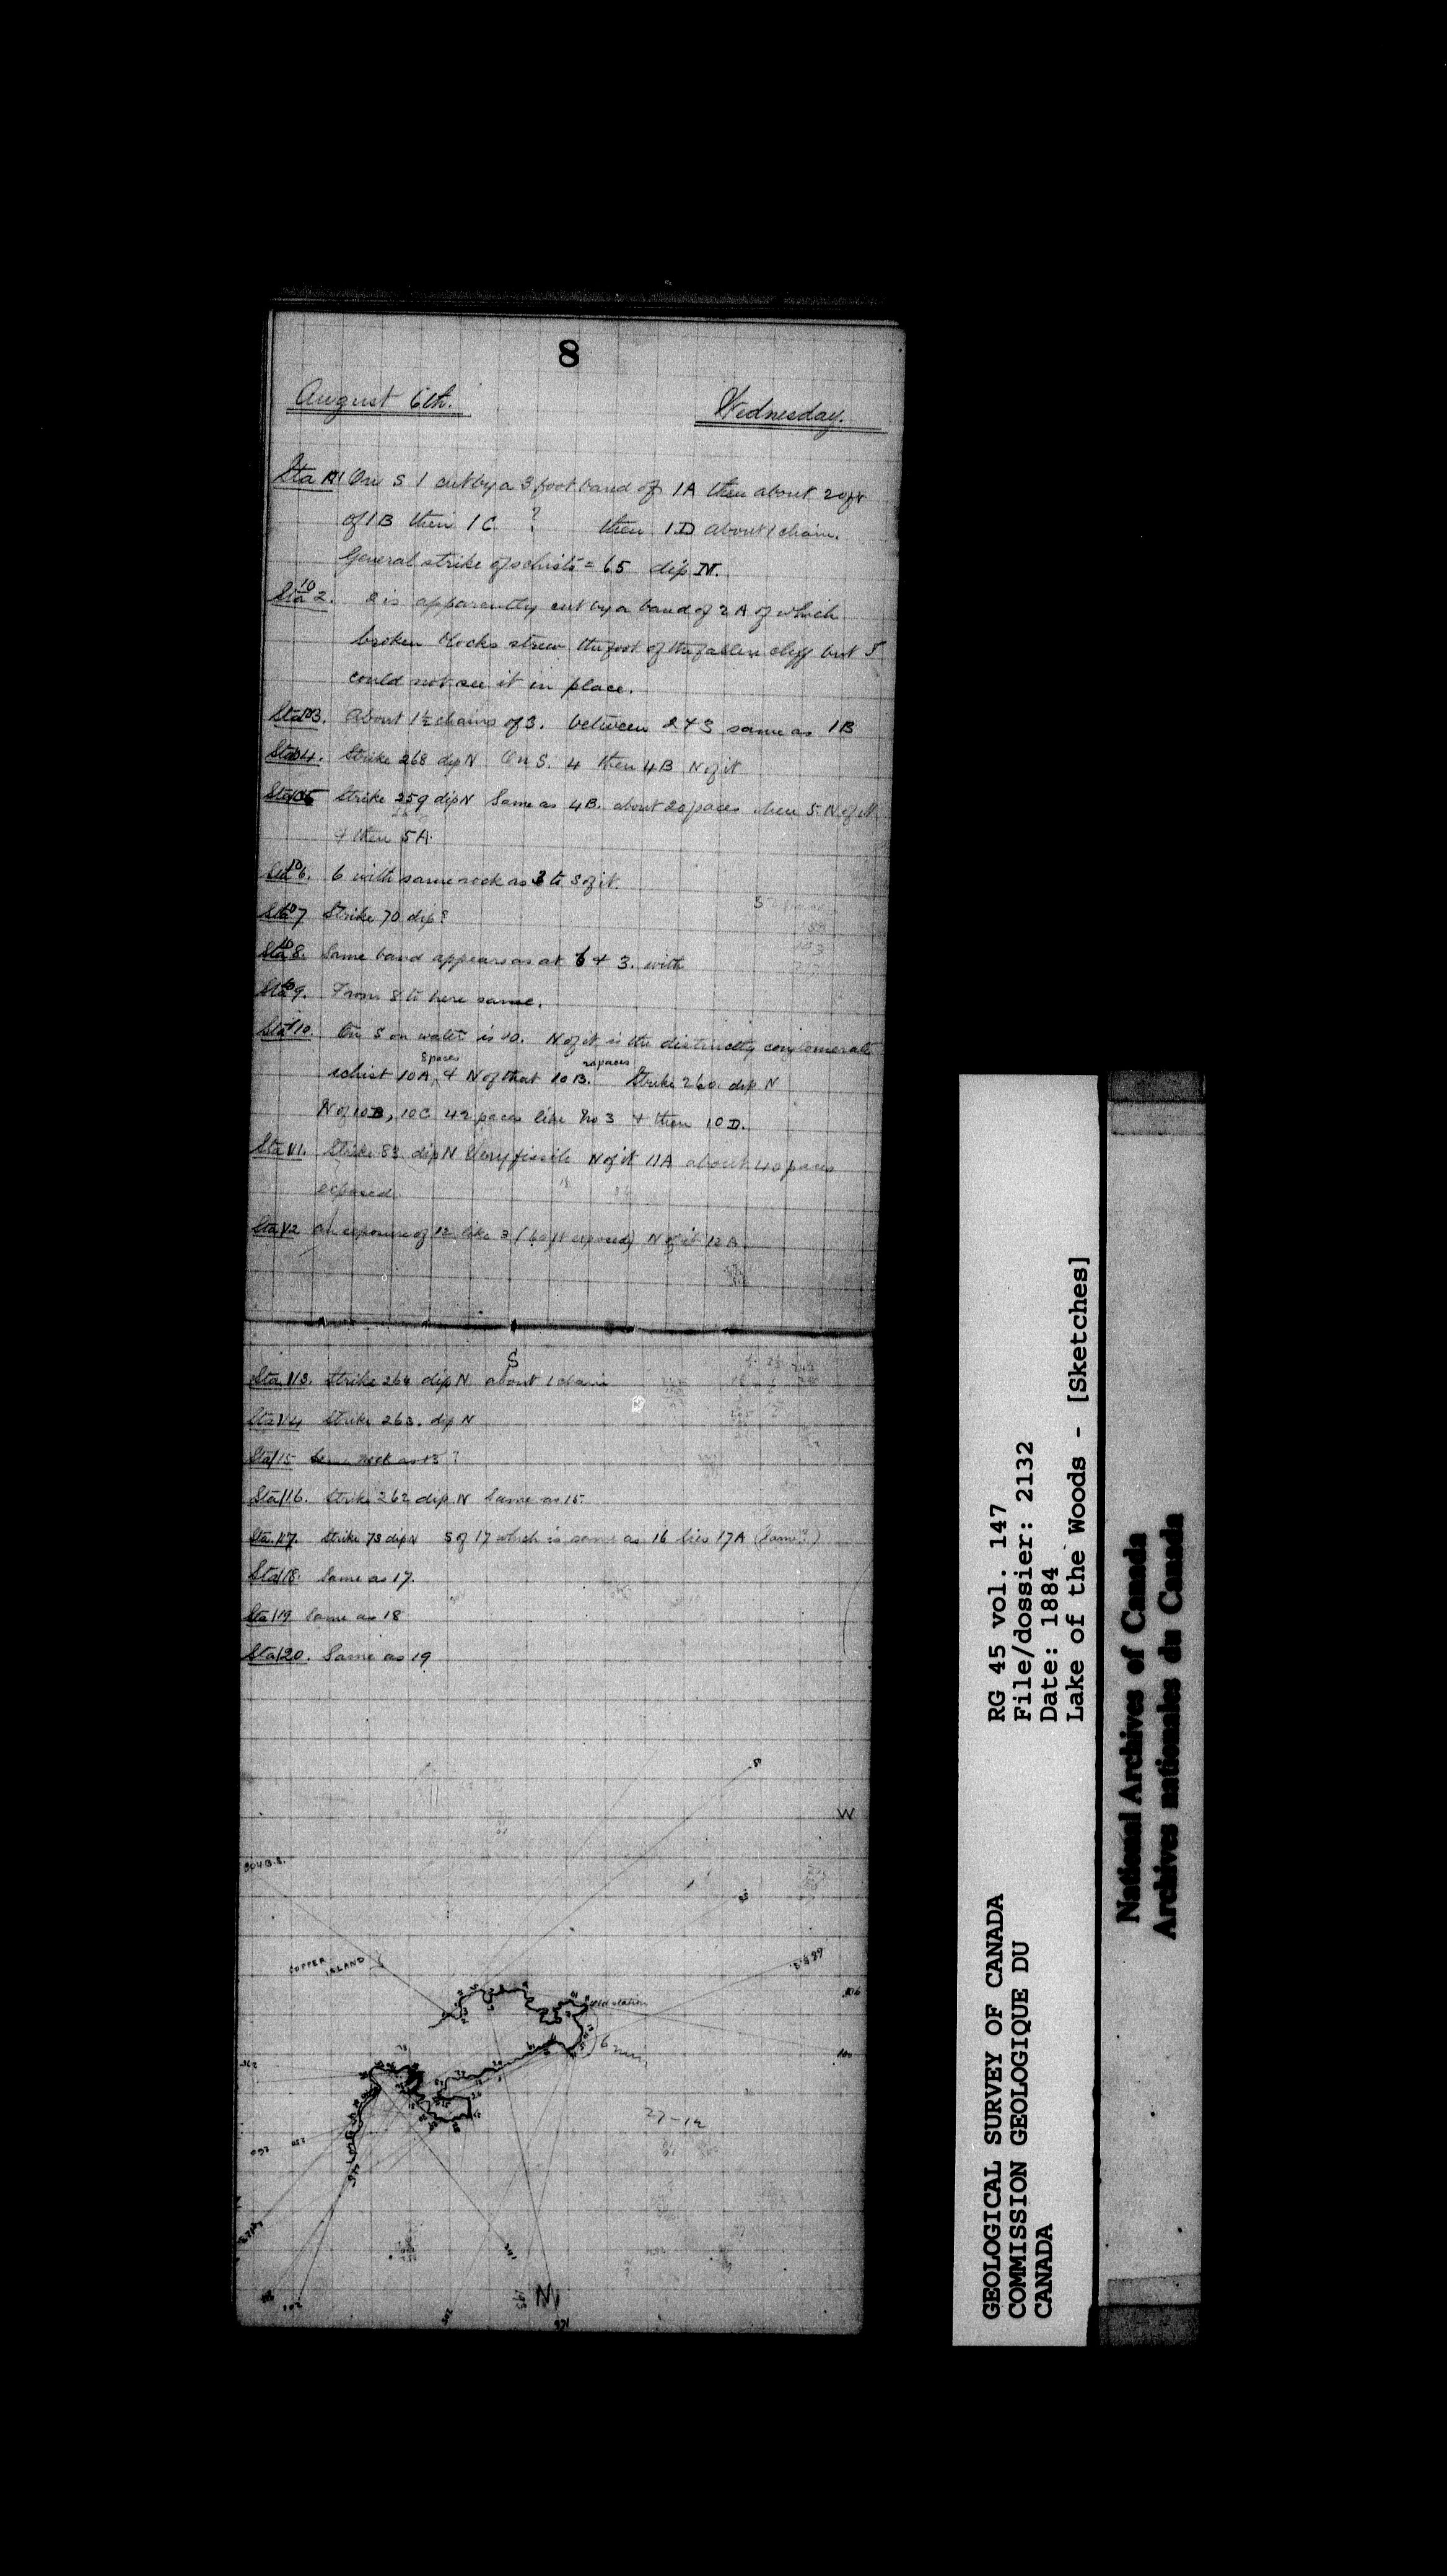 8
August 6th. Wednesday.
Sta 101 On S 1 cut by a 3 foot band of 1A then about 20 ft
of 1B then 1C ? then 1D about 1 chain.
General strike of schists = 65 dip N.
Sta 102. 2 is apparently cut by a band of 2A of which
broken blocks strew the foot of the fallen cliff but I
could not see it in place.
Sta 103. About 1½ chains of 3. between 2 & 3 same as 1B
Sta 104. Strike 268 dip N On S. 4 then 4B N of it
Sta 105 Strike 259 dip N Same as 4B. about 20 paces then 5 N of it
& then 5A.
Sta 106. 6 with same rock as 3 to S of it.
Sta 107 Strike 70 dip?
Sta 108. Same band appears as at 6 & 3. with
Sta 109. From 8 to here same.
Sta 110. On S on water is 10. N of it is the distinctly conglomerate
schist 10A, 8 paces & N of that 10B. 20 paces Strike 260. dip N
N of 10B, 10C 42 paces like No 3 & then 10D.
Sta 111. Strike 83 dip N Very fissile N of it 11A about 40 paces
exposed
Sta 112 An exposure of 12 like 3 (60 ft exposed) N of it 12A
S
Sta 113. Strike 264 dip N about 1 chain
Sta 114 Strike 263. dip N
Sta 115 Same rock as 13?
Sta 116. Strike 262 dip N Same as 15
Sta. 117. Strike 73 dip N S of 17 which is same as 16 lies 17A (Same?)
Sta 118. Same as 17.
Sta 119 Same as 18
Sta 120. Same as 19
W
COPPER ISLAND
Old station
6 min
27-12
N
RG 45 vol. 147
File/dossier: 2132
Date: 1884
Lake of the Woods - [Sketches]
GEOLOGICAL SURVEY OF CANADA
COMMISSION GEOLOGIQUE DU
CANADA
National Archives of Canada
Archives nationales du Canada